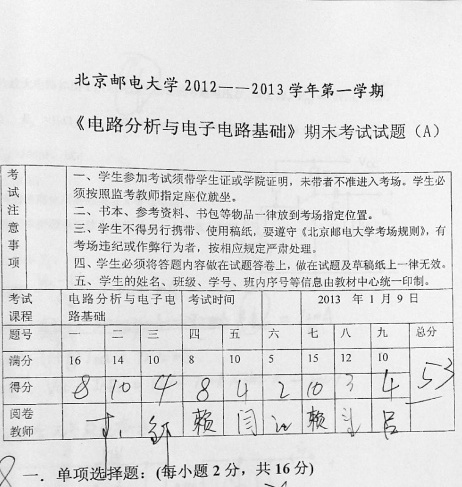 北京邮电大学 2012——2013 学年第一学期
《电路分析与电子电路基础》期末考试试题（A）
考试注意事项
一、学生参加考试须带学生证或学院证明，未带者不准进入考场。学生必
须按照监考教师指定座位就坐。
二、书本、参考资料、书包等物品一律放到考场指定位置。
三、学生不得另行携带、使用稿纸，要遵守《北京邮电大学考场规则》，有
考场违纪或作弊行为者，按相应规定严肃处理。
四、学生必须将答题内容做在试题答卷上，做在试题及草稿纸上一律无效。
五、学生的姓名、班级、学号、班内序号等信息由教材中心统一印制。
考试课程 电路分析与电子电路基础 考试时间 2013 年 1 月 9 日
题号 一 二 三 四 五 六 七 八 九 总分
满分 16 14 10 8 10 5 15 12 10
得分 8 10 4 8 4 2 10 3 4 53
阅卷教师 赖 闫 赖 吕
一．单项选择题：(每小题 2 分，共 16 分)